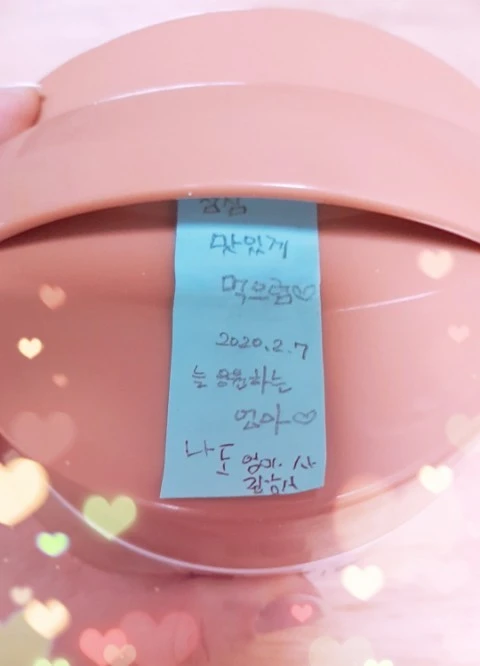 점심
맛있게
먹으렴♡
2020.2.7
늘 응원하는
엄마♡
나도 엄마